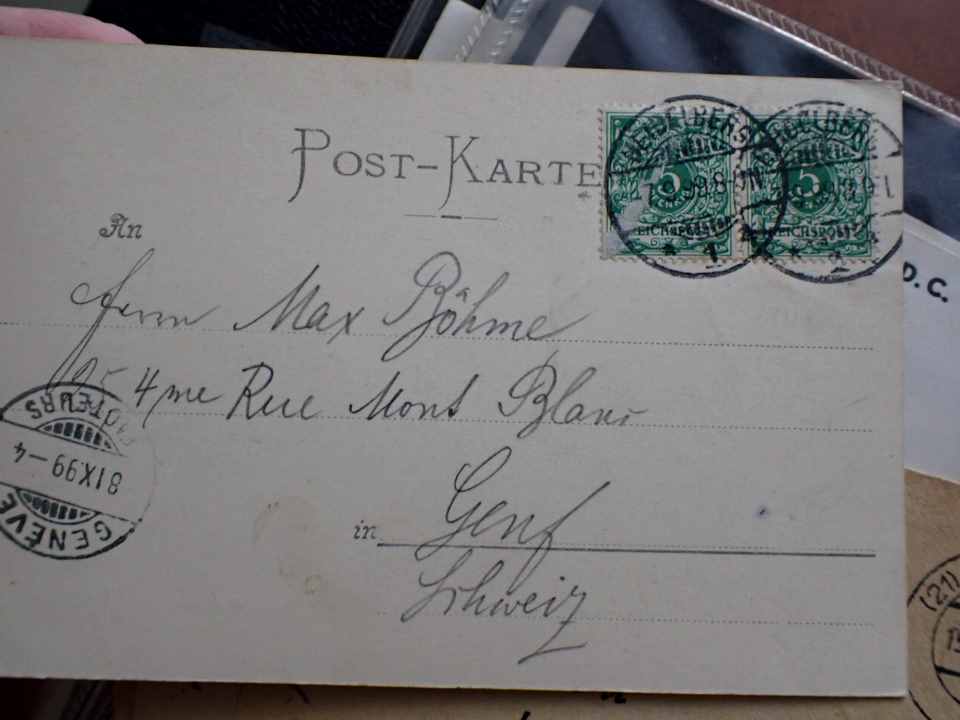 POST-KARTE
HEIDELBERG
7.9.99.8-9N
* 1 *
5
REICHSPOST
HEIDELBERG
5
REICHSPOST
* 1 *
An
Herrn Max Böhme
25 4me Rue Mont Blanc
in Genf
Schweiz
GENÈVE
8 IX 99 – 4
FACTEURS
D.C.
(21)